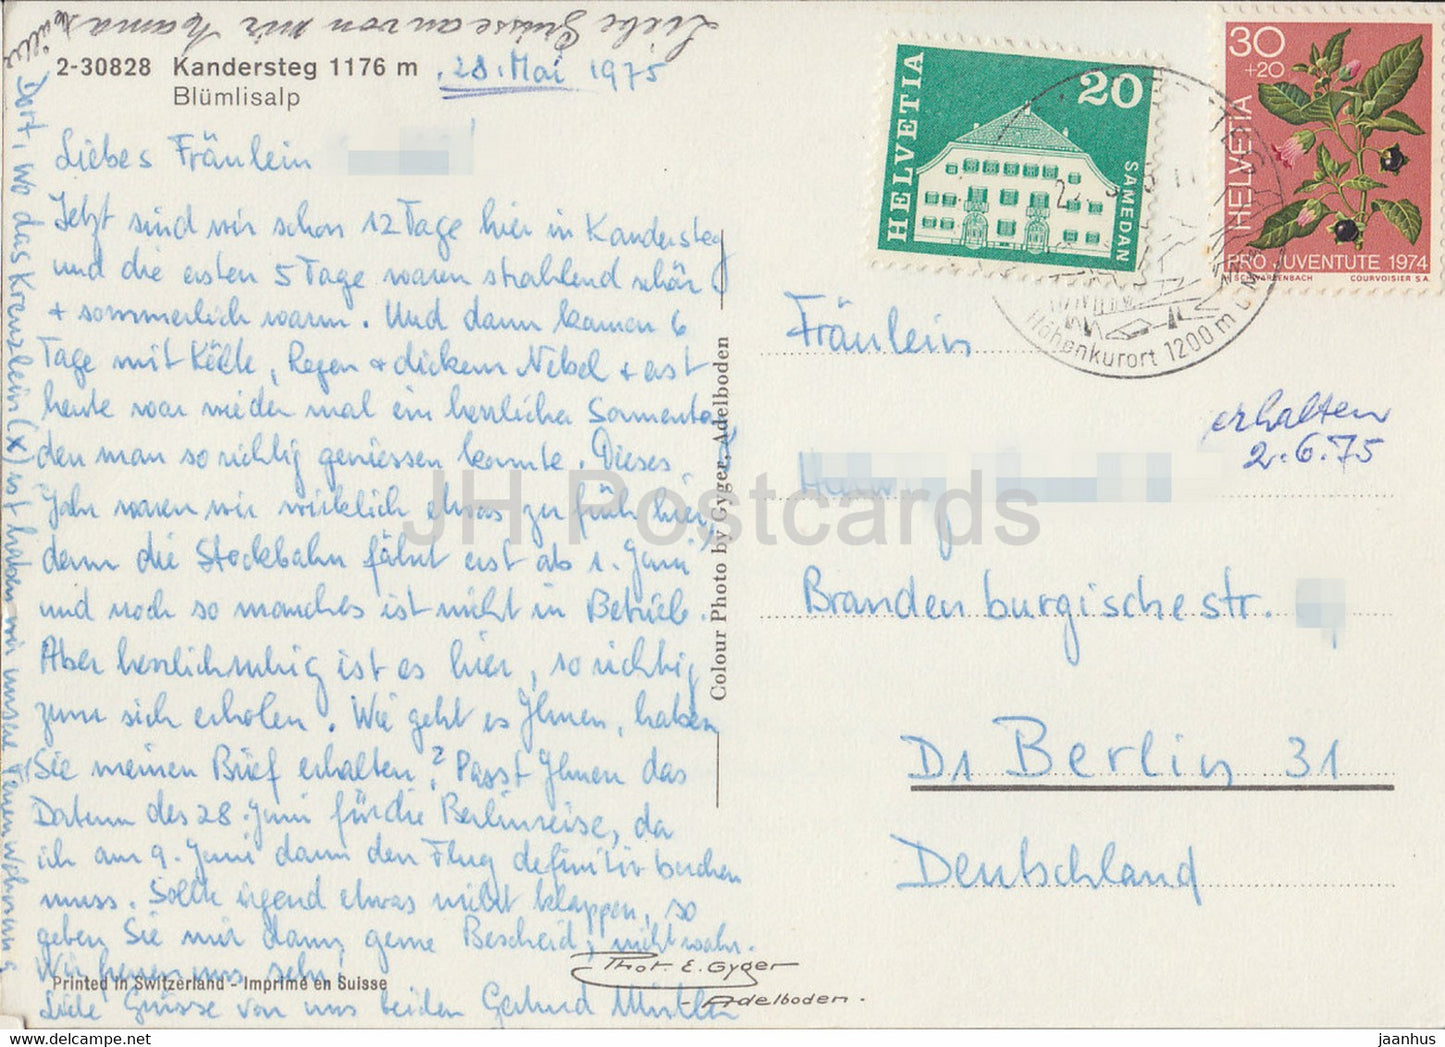 Liebe Grüsse auch von mir Hanna
2-30828 Kandersteg 1176 m
Blümlisalp
28. Mai 1975
Liebes Fräulein
Jetzt sind wir schon 12 Tage hier in Kandersteg
und die ersten 5 Tage waren strahlend schön
+ sommerlich warm. Und dann kamen 6
Tage mit Kälte, Regen + dickem Nebel + erst
heute war wieder mal ein herrlicher Sonnentag,
den man so richtig geniessen konnte. Dieses
Jahr waren wir wirklich etwas zu früh hier,
denn die Stockbahn fährt erst ab 1. Juni
und noch so manches ist nicht in Betrieb.
Aber herrlich ruhig ist es hier, so richtig
zum sich erholen. Wie geht es Ihnen, haben
Sie meinen Brief erhalten? Passt Ihnen das
Datum des 28. Juni für die Berlinreise, da
ich am 9. Juni dann den Flug definitiv buchen
muss. Sollte irgend etwas nicht klappen, so
geben Sie mir dann gerne Bescheid, nicht wahr.
Wir freuen uns sehr.
Liebe Grüsse von uns beiden Gertrud
Dort, wo das Kreuzlein (x) ist haben wir unsere Ferienwohnung
Printed in Switzerland - Imprimé en Suisse
Phot. E. Gyger
- Adelboden -
Colour Photo by Gyger, Adelboden
HELVETIA
20
SAMEDAN
30
+20
HELVETIA
PRO JUVENTUTE 1974
M. SCHWARZENBACH COURVOISIER S.A.
Höhenkurort 1200 m ü. M.
Fräulein
erhalten
2.6.75
Brandenburgische str.
D1 Berlin 31
Deutschland
JH Postcards
jaanhus